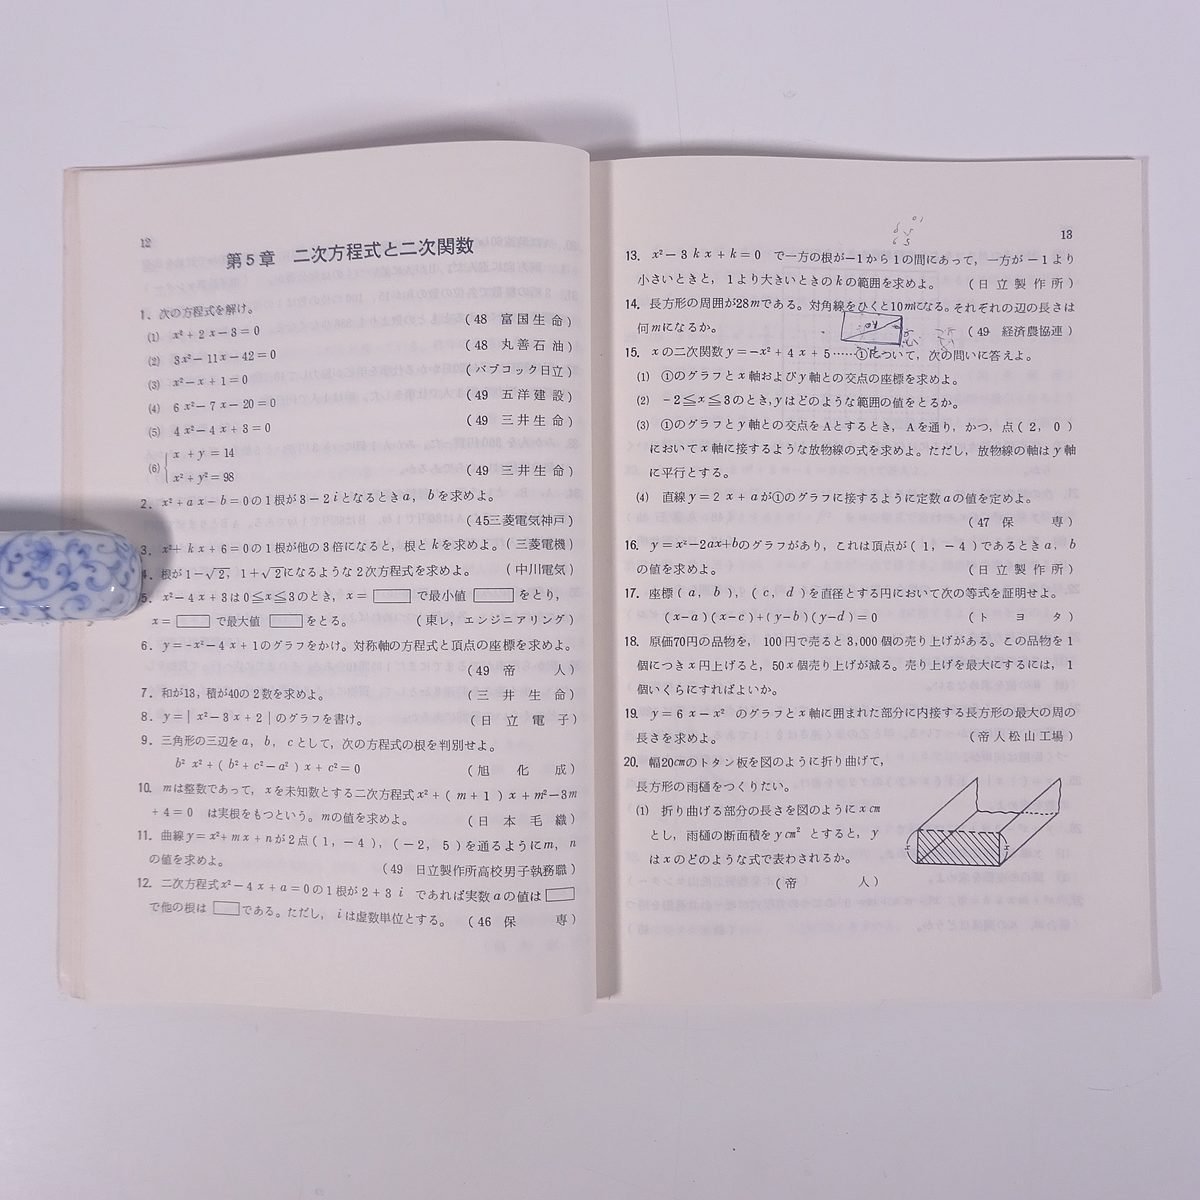 12
第5章　二次方程式と二次関数
1．次の方程式を解け。
(1)　x²+2x−3=0　(48　富国生命)
(2)　3x²−11x−42=0　(48　丸善石油)
(3)　x²−x+1=0　(バブコック日立)
(4)　6x²−7x−20=0　(49　五洋建設)
(5)　4x²−4x+3=0　(49　三井生命)
(6)　x+y=14
x²+y²=98　(49　三井生命)
2．x²+ax−b=0の1根が3−2iとなるときa，bを求めよ。
(45三菱電気神戸)
3．x²+kx+6=0の1根が他の3倍になると，根とkを求めよ。(三菱電機)
4．根が1−√2，1+√2になるような2次方程式を求めよ。　(中川電気)
5．x²−4x+3は0≦x≦3のとき，x=□で最小値□をとり，
x=□で最大値□をとる。　(東レ，エンジニアリング)
6．y=−x²−4x+1のグラフをかけ。対称軸の方程式と頂点の座標を求めよ。
(49　帝　人)
7．和が13，積が40の2数を求めよ。　(三井生命)
8．y=|x²−3x+2|のグラフを書け。　(日立電子)
9．三角形の三辺をa，b，cとして，次の方程式の根を判別せよ。
b²x²+(b²+c²−a²)x+c²=0　(旭化成)
10．mは整数であって，xを未知数とする二次方程式x²+(m+1)x+m²−3m
+4=0　は実根をもつという。mの値を求めよ。　(日本毛織)
11．曲線y=x²+mx+nが2点(1，−4)，(−2，5)を通るようにm，n
の値を求めよ。　(49　日立製作所高校男子執務職)
12．二次方程式x²−4x+a=0の1根が2+3i　であれば実数aの値は□
で他の根は□である。ただし，iは虚数単位とする。　(46　保　専)
13
13．x²−3kx+k=0　で一方の根が−1から1の間にあって，一方が−1より
小さいときと，1より大きいときのkの範囲を求めよ。　(日立製作所)
14．長方形の周囲が28mである。対角線をひくと10mになる。それぞれの辺の長さは
何mになるか。　(49　経済農協連)
15．xの二次関数y=−x²+4x+5……①について，次の問いに答えよ。
(1)　①のグラフとx軸およびy軸との交点の座標を求めよ。
(2)　−2≦x≦3のとき，yはどのような範囲の値をとるか。
(3)　①のグラフとy軸との交点をAとするとき，Aを通り，かつ，点(2，0)
においてx軸に接するような放物線の式を求めよ。ただし，放物線の軸はy軸
に平行とする。
(4)　直線y=2x+aが①のグラフに接するように定数aの値を定めよ。
(47　保　専)
16．y=x²−2ax+bのグラフがあり，これは頂点が(1，−4)であるときa，b
の値を求めよ。　(日立製作所)
17．座標(a，b)，(c，d)を直径とする円において次の等式を証明せよ。
(x−a)(x−c)+(y−b)(y−d)=0　(トヨタ)
18．原価70円の品物を，100円で売ると3,000個の売り上げがある。この品物を1
個につきx円上げると，50x個売り上げが減る。売り上げを最大にするには，1
個いくらにすればよいか。
19．y=6x−x²　のグラフとx軸に囲まれた部分に内接する長方形の最大の周の
長さを求めよ。　(帝人松山工場)
20．幅20cmのトタン板を図のように折り曲げて，
長方形の雨樋をつくりたい。
(1)　折り曲げる部分の長さを図のようにxcm
とし，雨樋の断面積をycm²とすると，y
はxのどのような式で表わされるか。
(帝　人)
x
x